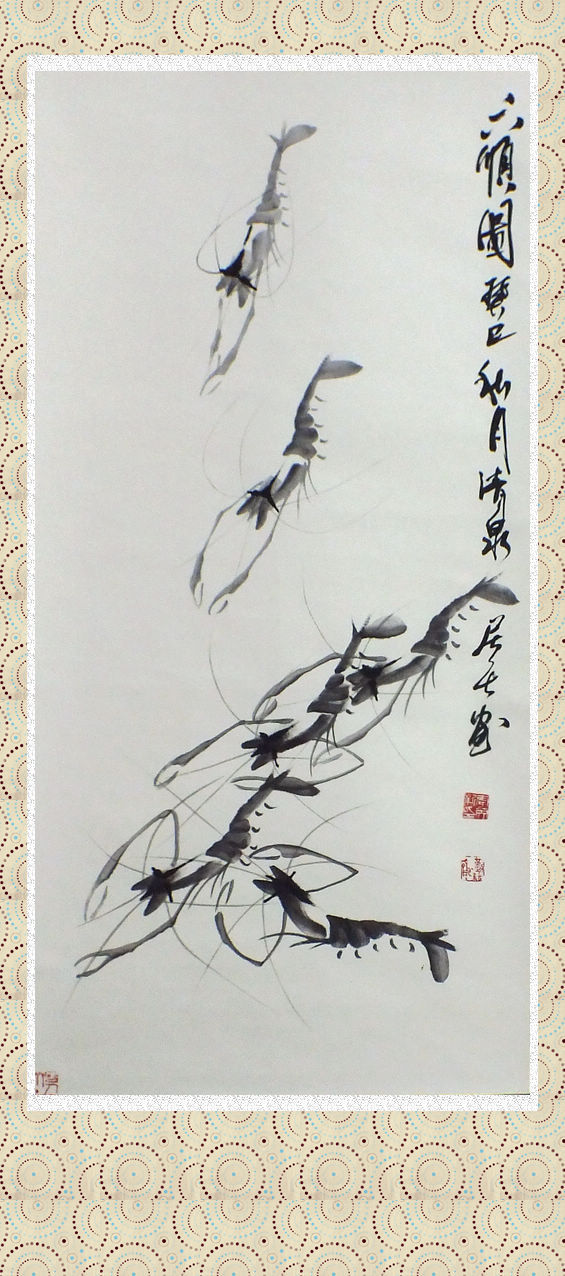 六顺圖癸巳秋月清泉居士画